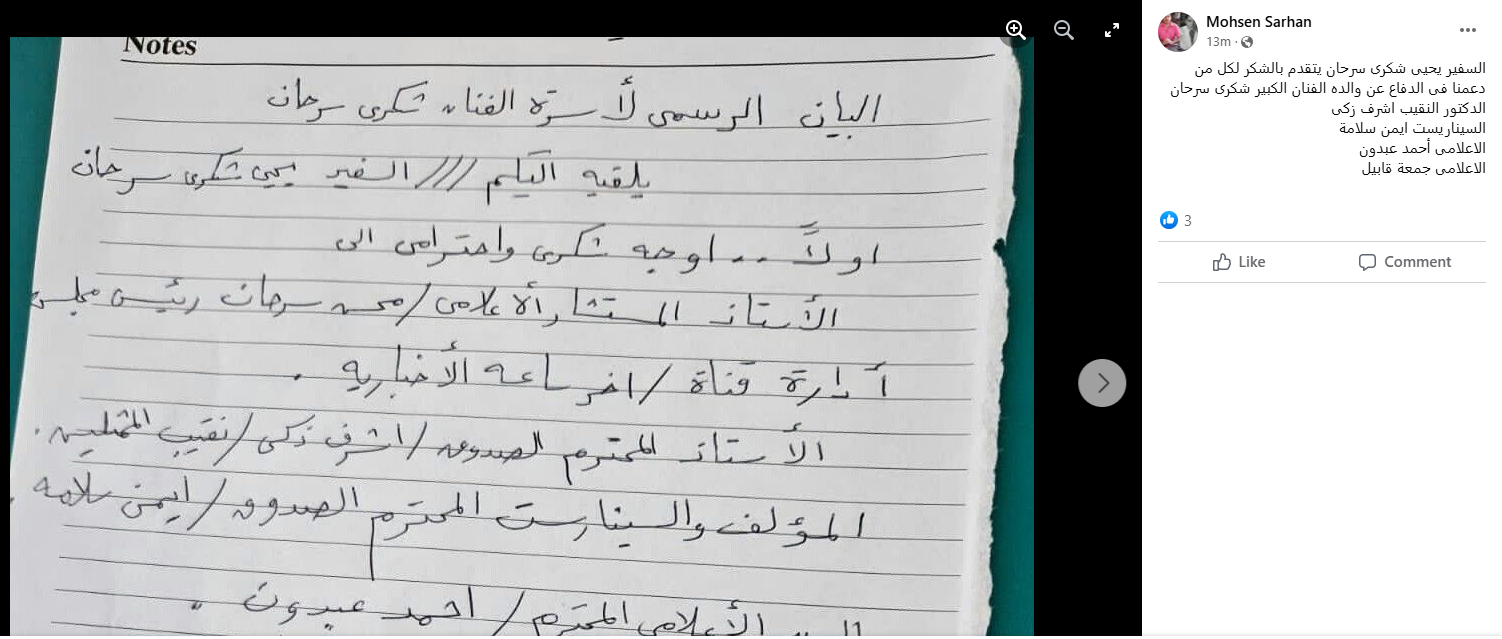 Notes
البيان الرسمى لأسرة الفنان شكرى سرحان
يلقيه اليكم /// السفير يحيى شكرى سرحان
اولاً .. اوجه شكرى واحترامى الى
الأستاذ المستشار الأعلامى / محسن سرحان رئيس مجلس
أدارة قناة / اخر ساعه الأخباريه .
الأستاذ المحترم الصدوق / اشرف زكى / نقيب الممثلين .
المؤلف والسينارست المحترم الصدوق / ايمن سلامه .
الأعلامى المحترم / احمد عبدون .
Mohsen Sarhan
13m
السفير يحيى شكرى سرحان يتقدم بالشكر لكل من
دعمنا فى الدفاع عن والده الفنان الكبير شكرى سرحان
الدكتور النقيب اشرف زكى
السيناريست ايمن سلامة
الاعلامى أحمد عبدون
الاعلامى جمعة قابيل
3
Like Comment